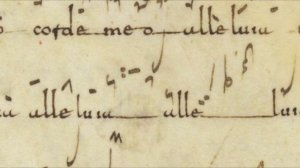 corde meo alleluia
alleluia alle luia